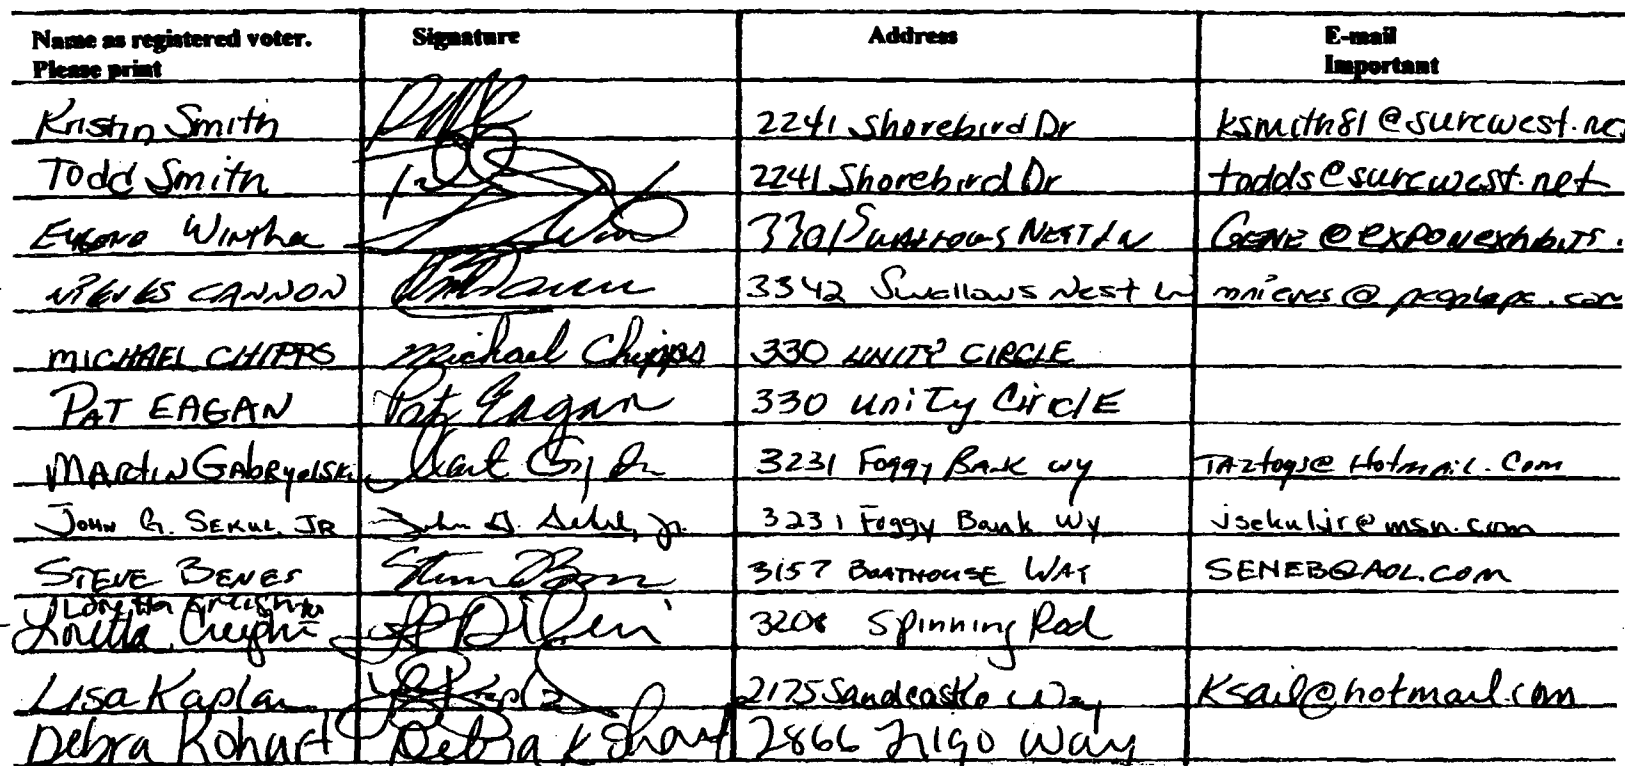 Name as registered voter. Signature Address E-mail
Please print Important
Kristin Smith 2241 Shorebird Dr ksmith81@surewest.net
Todd Smith 2241 Shorebird Dr todds@surewest.net
3301 Swallows Nest Ln GENE@exponexhibits.
NIEVES CANNON 3342 Swallows Nest Ln
MICHAEL CHIPPS Michael Chipps 330 UNITY CIRCLE
PAT EAGAN Pat Eagan 330 Unity CirclE
MARtiN GAbRyolski 3231 Foggy BANK wy
JOHN G. SEKUL JR John G. Sekul, Jr. 3231 Foggy Bank Wy jsekuljr@msn.com
STEVE BENES 3157 BOATHOUSE WAY SENEB@AOL.COM
Loretta
Loretta 3208 Spinning Rod
Lisa Kaplan L Kaplan 2175 Sandcastle Way Ksail@hotmail.com
Debra Kohart Debra Kohart 2866 Way